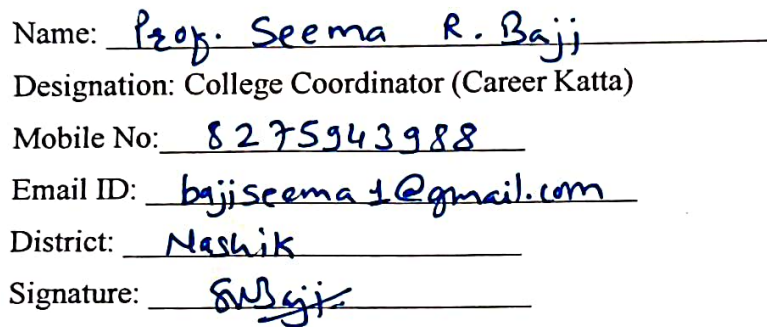 Name: Prof. Seema R. Bajj
Designation: College Coordinator (Career Katta)
Mobile No: 8275943988
Email ID: bajiseema1@gmail.com
District: Nashik
Signature: